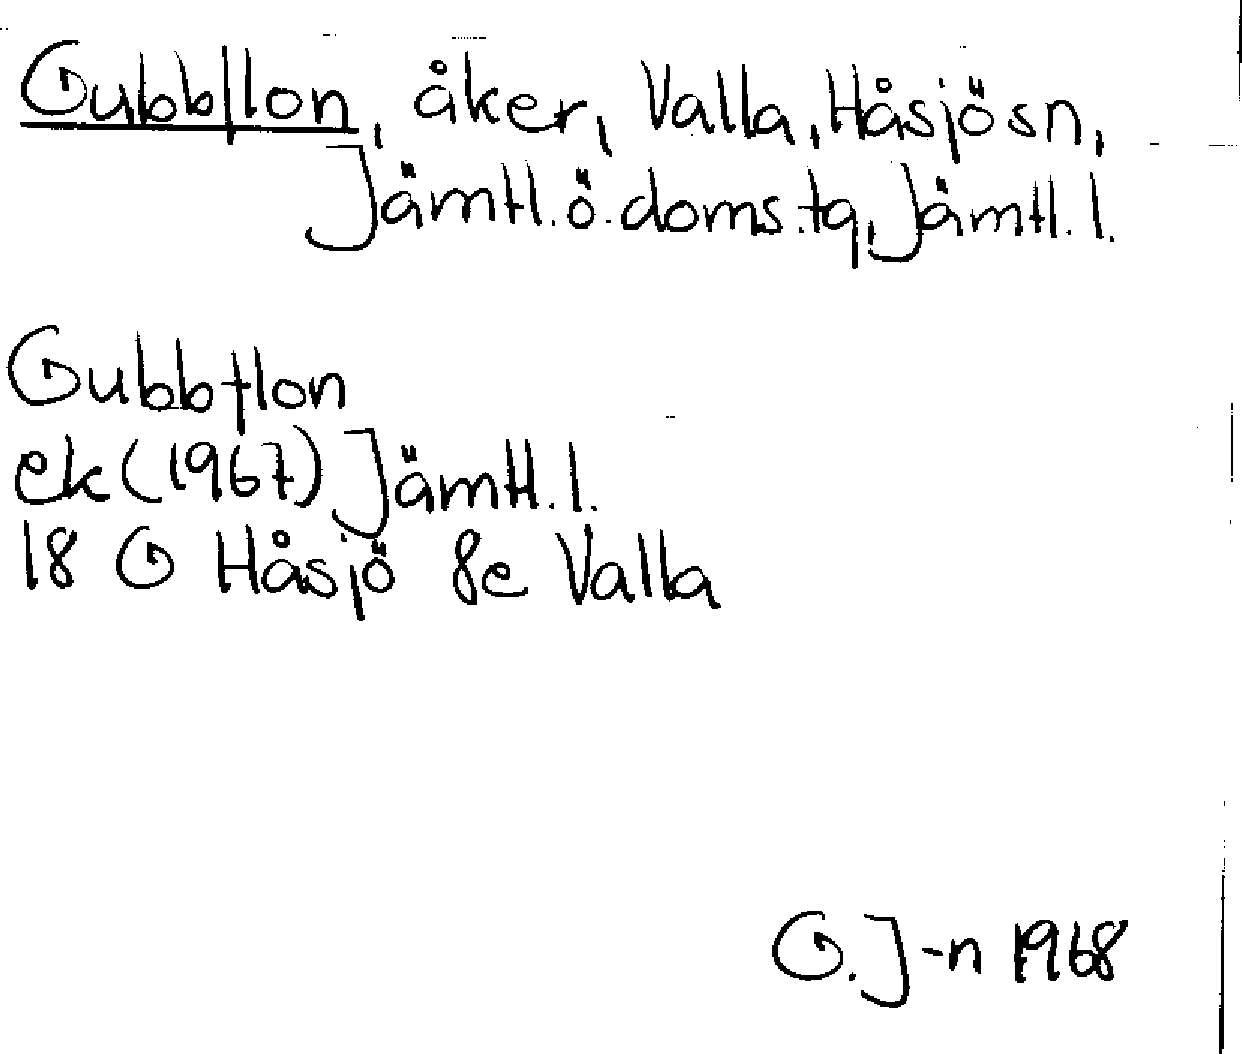 Gubb|lon, åker, Valla, Håsjö sn,
Jämtl. ö. doms. tg, Jämtl. l.
Gubbflon
ek (1967) Jämtl. l.
18 G Håsjö 8e Valla
G. J-n 1968